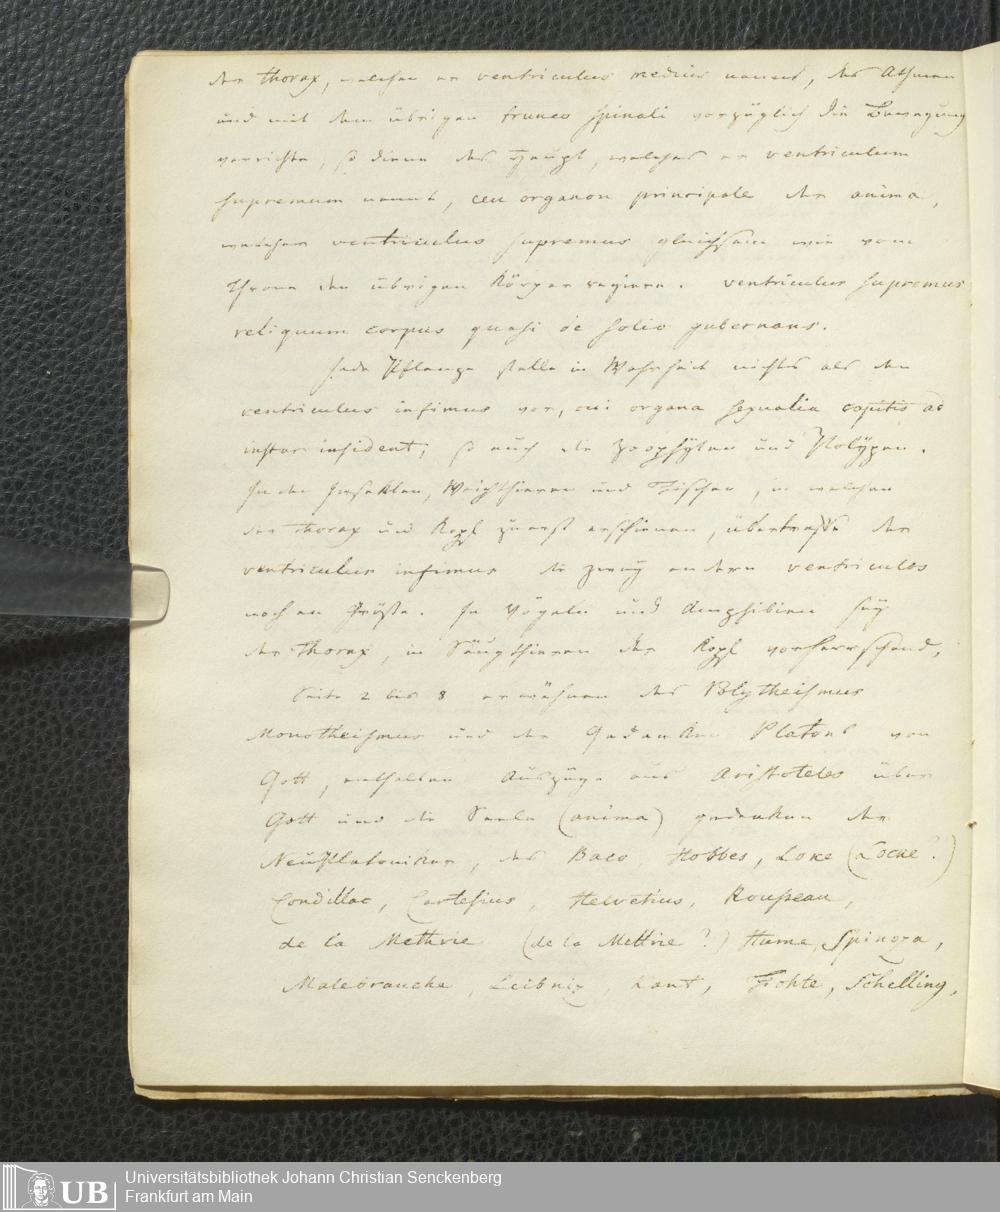 der Thorax, welchen er ventriculus medius nennt, das Athmen
und mit dem übrigen trunco spinali vorzüglich die Bewegung
verrichte, so diene das Haupt, welches er ventriculum
supremum nennt, ceu organon principale der anima,
welcher ventriculus supremus gleichsam wie vom
Throne den übrigen Körper regiere. ventriculus supremus
reliquum corpus quasi de solio gubernans.
Jede Pflanze stelle in Wahrheit nichts als den
ventriculus infimus vor, cui organa sexualia capitis ad
instar insident; so auch die Zoophyten und Polypen.
In den Insekten, Weichthieren und Fischen, in welchen
der Thorax und Kopf zuerst erschienen, übertreffe der
ventriculus infimus die zwey andern ventriculos
noch an Größe. In Vögeln und Amphibien sey
der Thorax, in Säugthieren der Kopf vorherrschend,
Seite 2 bis 8 erwähnen des Polytheismus
Monotheismus und der Gedanken Platons von
Gott, enthalten Auszüge aus Aristoteles über
Gott und die Seele (anima) gedenken der
Neuplatoniker, des Baco, Hobbes, Loke (Locke?)
Condillac, Cartesius, Helvetius, Rousseau,
de la Methrie (de la Mettrie?) Hume, Spinoza,
Malebranche, Leibniz, Kant, Fichte, Schelling,
UB
Universitätsbibliothek Johann Christian Senckenberg
Frankfurt am Main